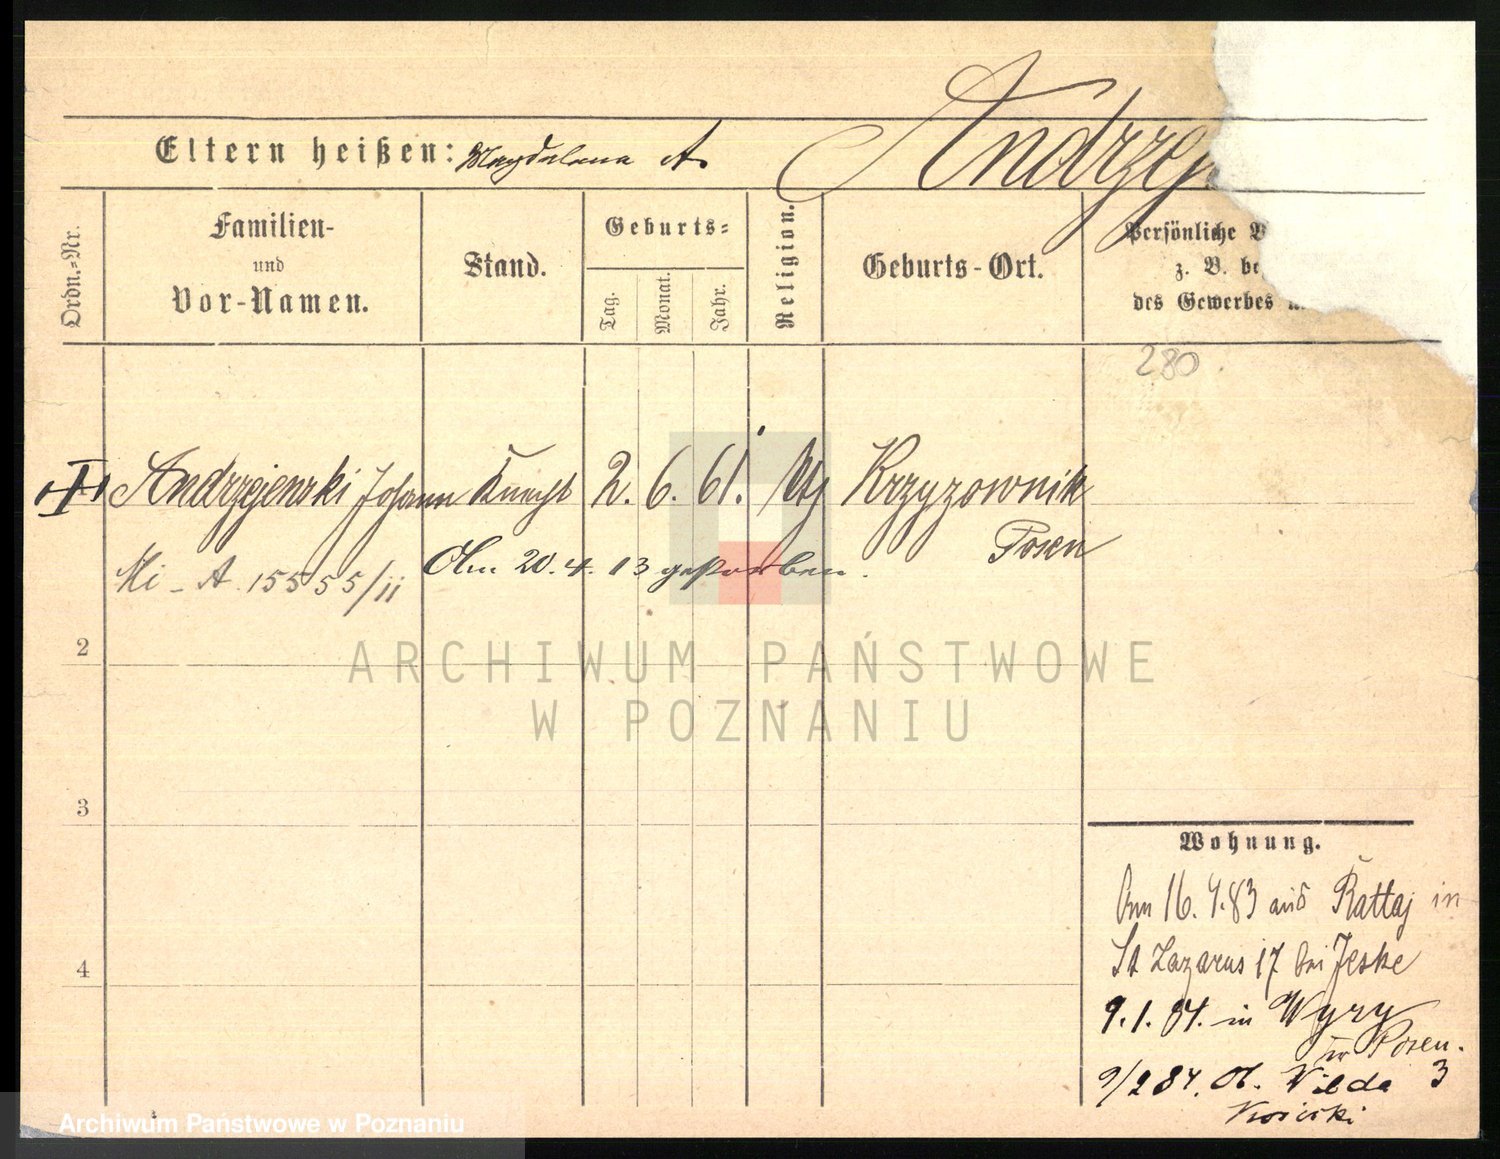 Andrzej
Eltern heißen: Magdalena A.
Ordn.-Nr.
Familien- und Vor-Namen.
Stand.
Geburts-
Tag.
Monat.
Jahr.
Religion.
Geburts-Ort.
Persönliche
z. B. be
des Gewerbes
280
Andrzejewski Johann Knecht 2. 6. 61. Krzyzownik
Posen
Mi - A. 15555/ii Am 20. 4. 13 gestorben.
2
3
4
Wohnung.
Am 16. 4. 83 aus Rattaj in
St Lazarus 17 bei Jeske
9. 1. 84. in Wyzy
Posen.
9/2 84. Ob. Wilda 3
ARCHIWUM PAŃSTWOWE
W POZNANIU
Archiwum Państwowe w Poznaniu